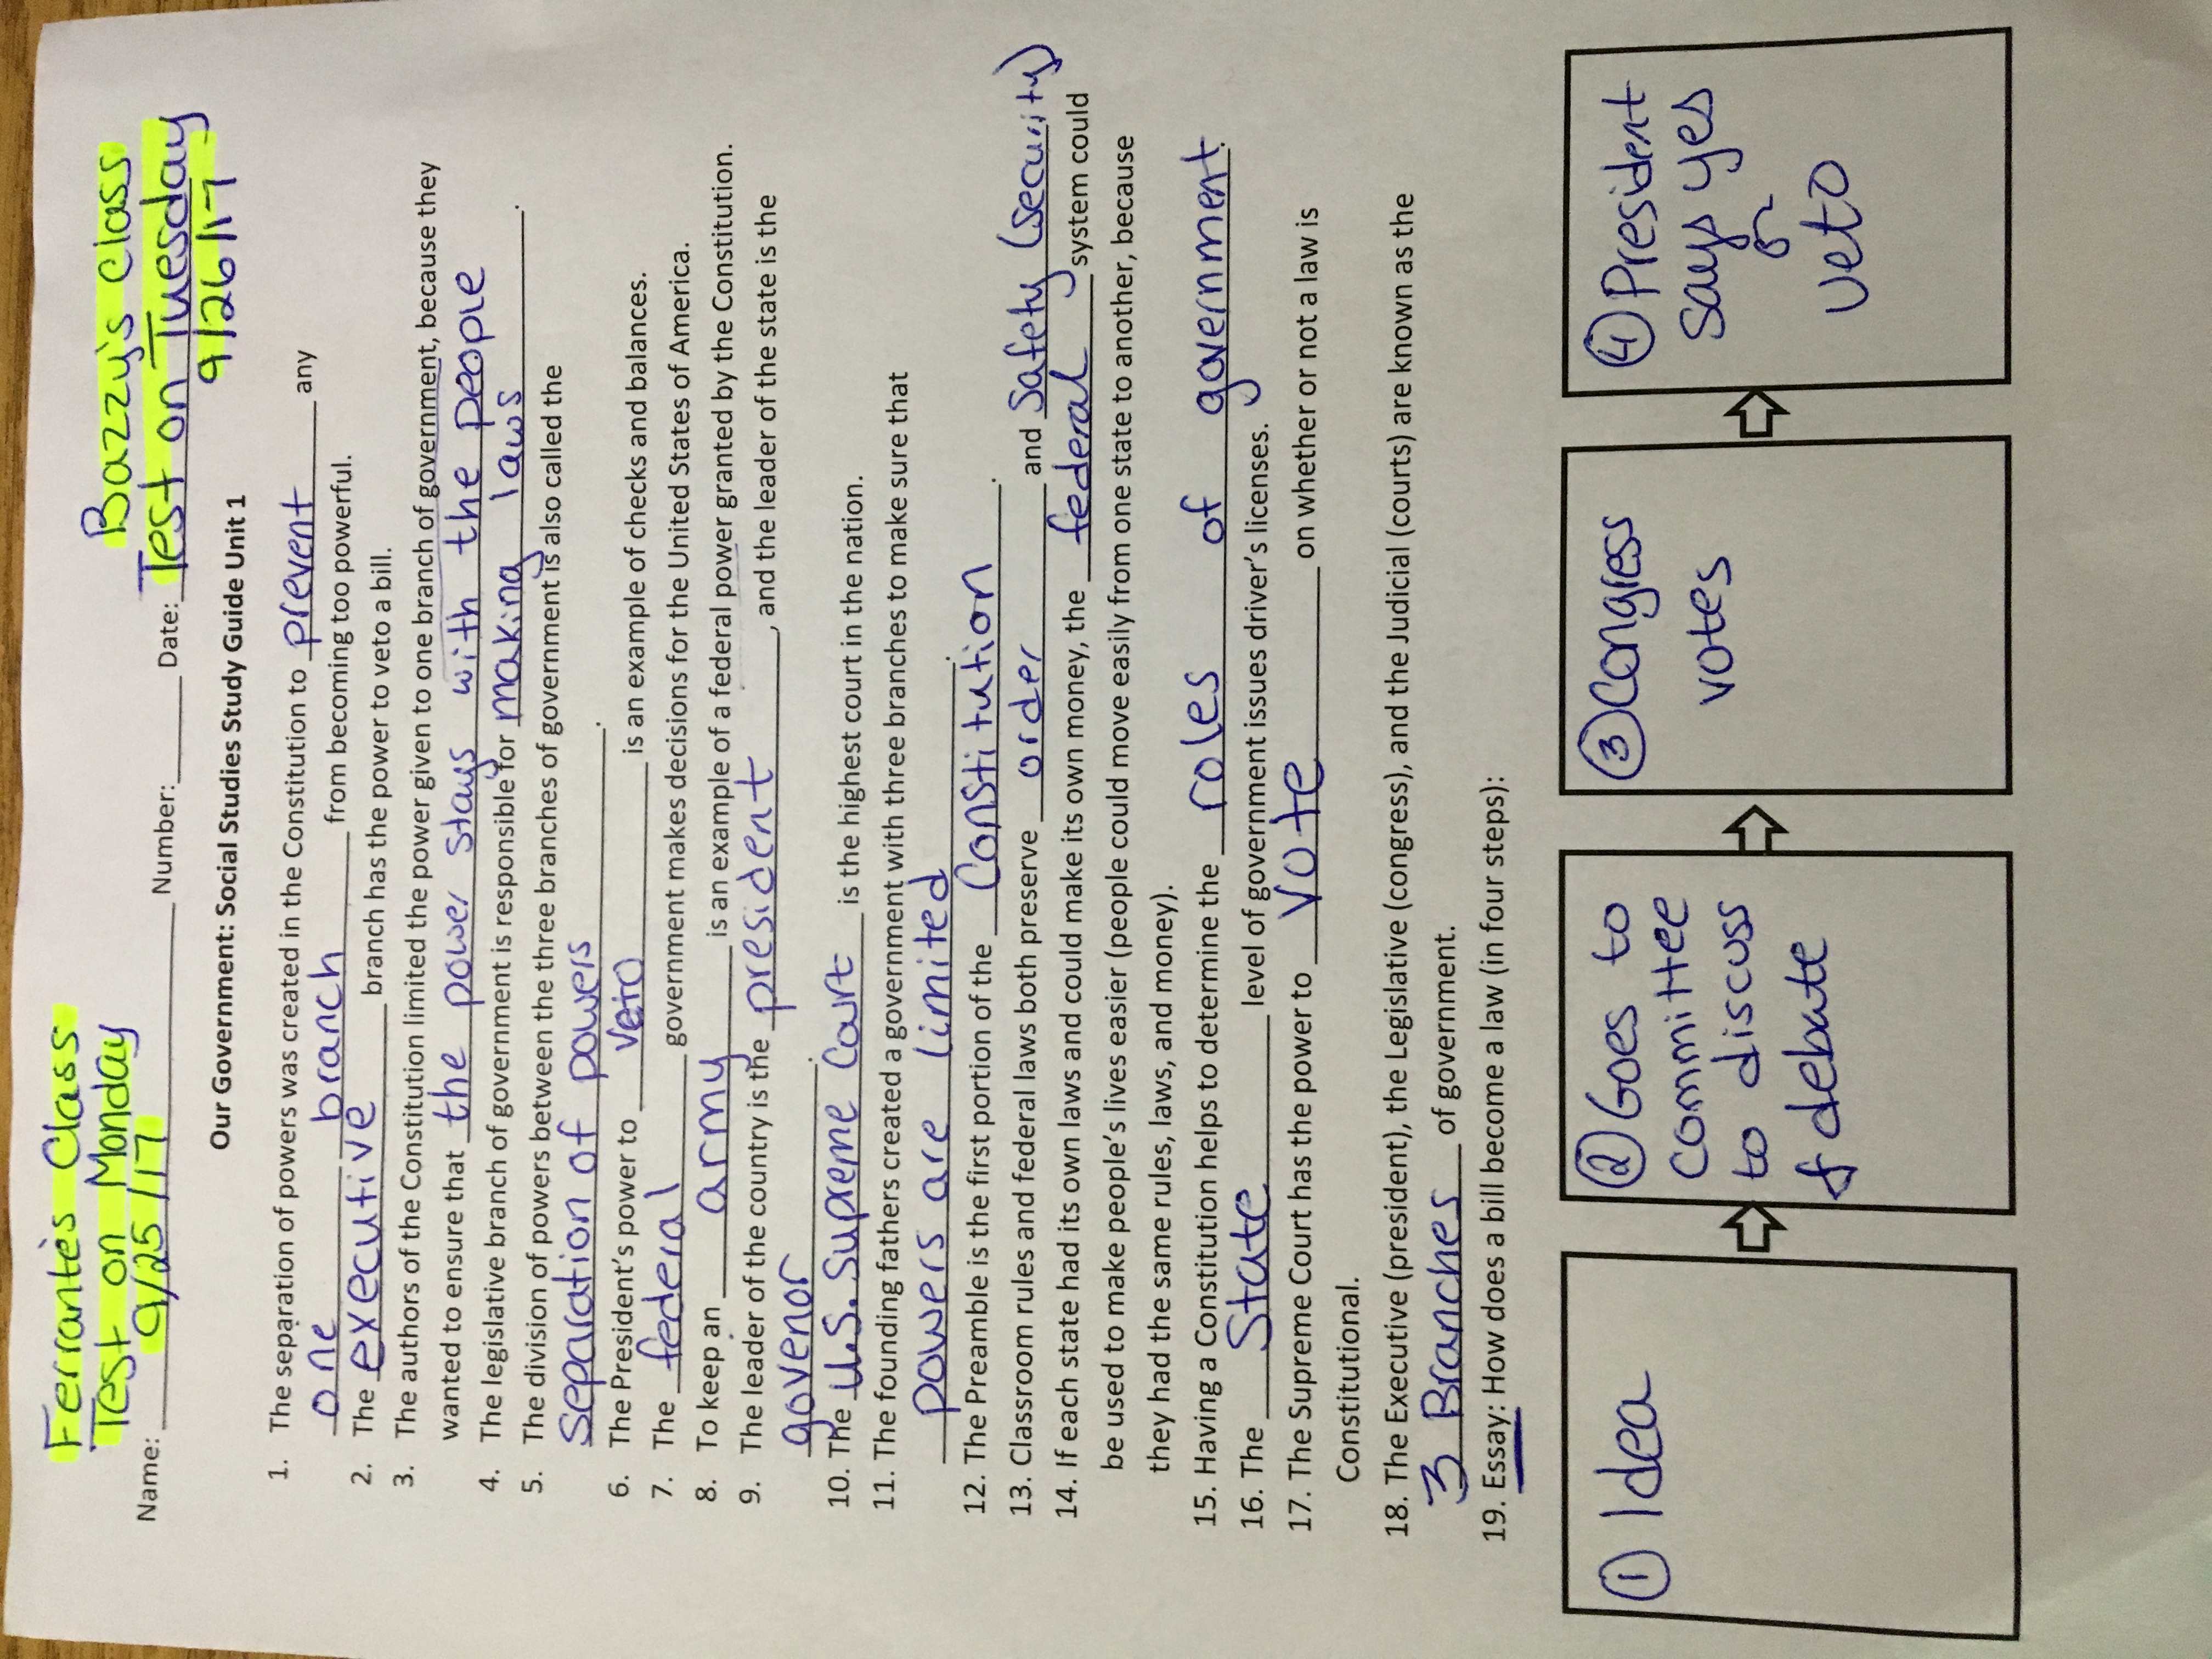 Ferrante's Class
Test on Monday
9/25/17
Bazzy's Class
Test on Tuesday
9/26/17
Name: Number: Date:
Our Government: Social Studies Study Guide Unit 1
1. The separation of powers was created in the Constitution to prevent any
one branch from becoming too powerful.
2. The executive branch has the power to veto a bill.
3. The authors of the Constitution limited the power given to one branch of government, because they
wanted to ensure that the power stays with the people
4. The legislative branch of government is responsible for making laws.
5. The division of powers between the three branches of government is also called the
separation of powers.
6. The President's power to veto is an example of checks and balances.
7. The federal government makes decisions for the United States of America.
8. To keep an army is an example of a federal power granted by the Constitution.
9. The leader of the country is the president, and the leader of the state is the
governor.
10. The U.S. Supreme Court is the highest court in the nation.
11. The founding fathers created a government with three branches to make sure that
powers are limited.
12. The Preamble is the first portion of the Constitution.
13. Classroom rules and federal laws both preserve order and safety (security)
14. If each state had its own laws and could make its own money, the federal system could
be used to make people's lives easier (people could move easily from one state to another, because
they had the same rules, laws, and money).
15. Having a Constitution helps to determine the roles of government.
16. The State level of government issues driver's licenses.
17. The Supreme Court has the power to vote on whether or not a law is
Constitutional.
18. The Executive (president), the Legislative (congress), and the Judicial (courts) are known as the
3 Branches of government.
19. Essay: How does a bill become a law (in four steps):
① Idea
② Goes to
committee
to discuss
& debate
③ Congress
votes
④ President
says yes
or
veto